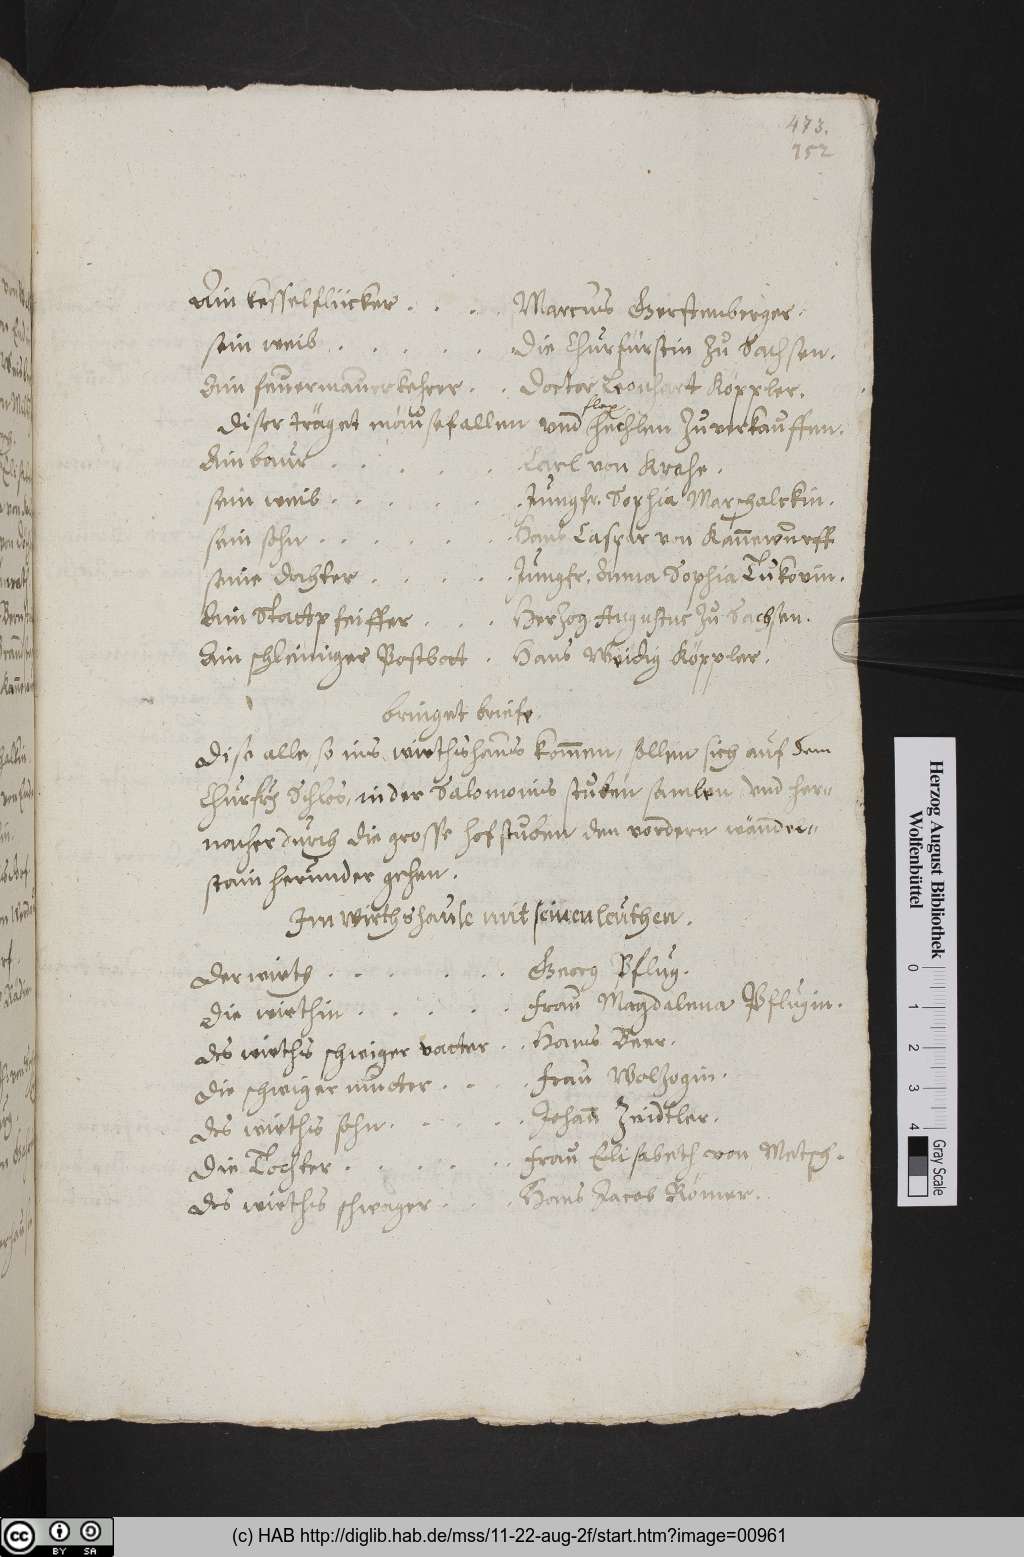 473.
152
Ein kesselflücker . . . . Marcus Gerstenberger.
sein weib . . . . . Die Churfürstin Zu Sachsen.
Ein feuermaurerkehrer . . Doctor Leonhart Köppler.
flax
Diser träget mäusefallen und hechlen Zuverkauffen.
Ein baur . . . . . Carl von Krahe.
sein weib . . . . . Jungfr. Sophia Marschalckin.
sein sohn . . . . . . Hans Caspar von Kannewurff
seine dochter . . . . . Jungfr. Anna Sophia
Ein Stattpfeiffer . . . . Herzog Augustus Zu Sachsen.
Ein schleiniger Postbott . Hans Weidig Köppler.
bringet briefe.
Dise alle, so ins wirthshaus kommen, sollen sich auf dem
Schlos, in der Salomonis stuben samlen und her=
nacher durch die grosse hofstuben den vordern wändel=
stain herunder gehen.
Im wirthshause mit seinen leuthen.
Der wirth . . . . . . Georg Pflug.
Die wirthin . . . . . frau Magdalena Pflugin.
des wirths schwiger vatter . . Hans Beer.
die schwiger mutter . . . . frau Wolzogin.
des wirths sohn . . . . . Johann Zeidtler.
die Tochter . . . . . frau Elisabeth von
des wirths schwager . . . . Hans Jacob Römer.
Herzog August Bibliothek
Wolfenbüttel
0 1 2 3 4
Gray Scale
(c) HAB http://diglib.hab.de/mss/11-22-aug-2f/start.htm?image=00961
cc BY SA